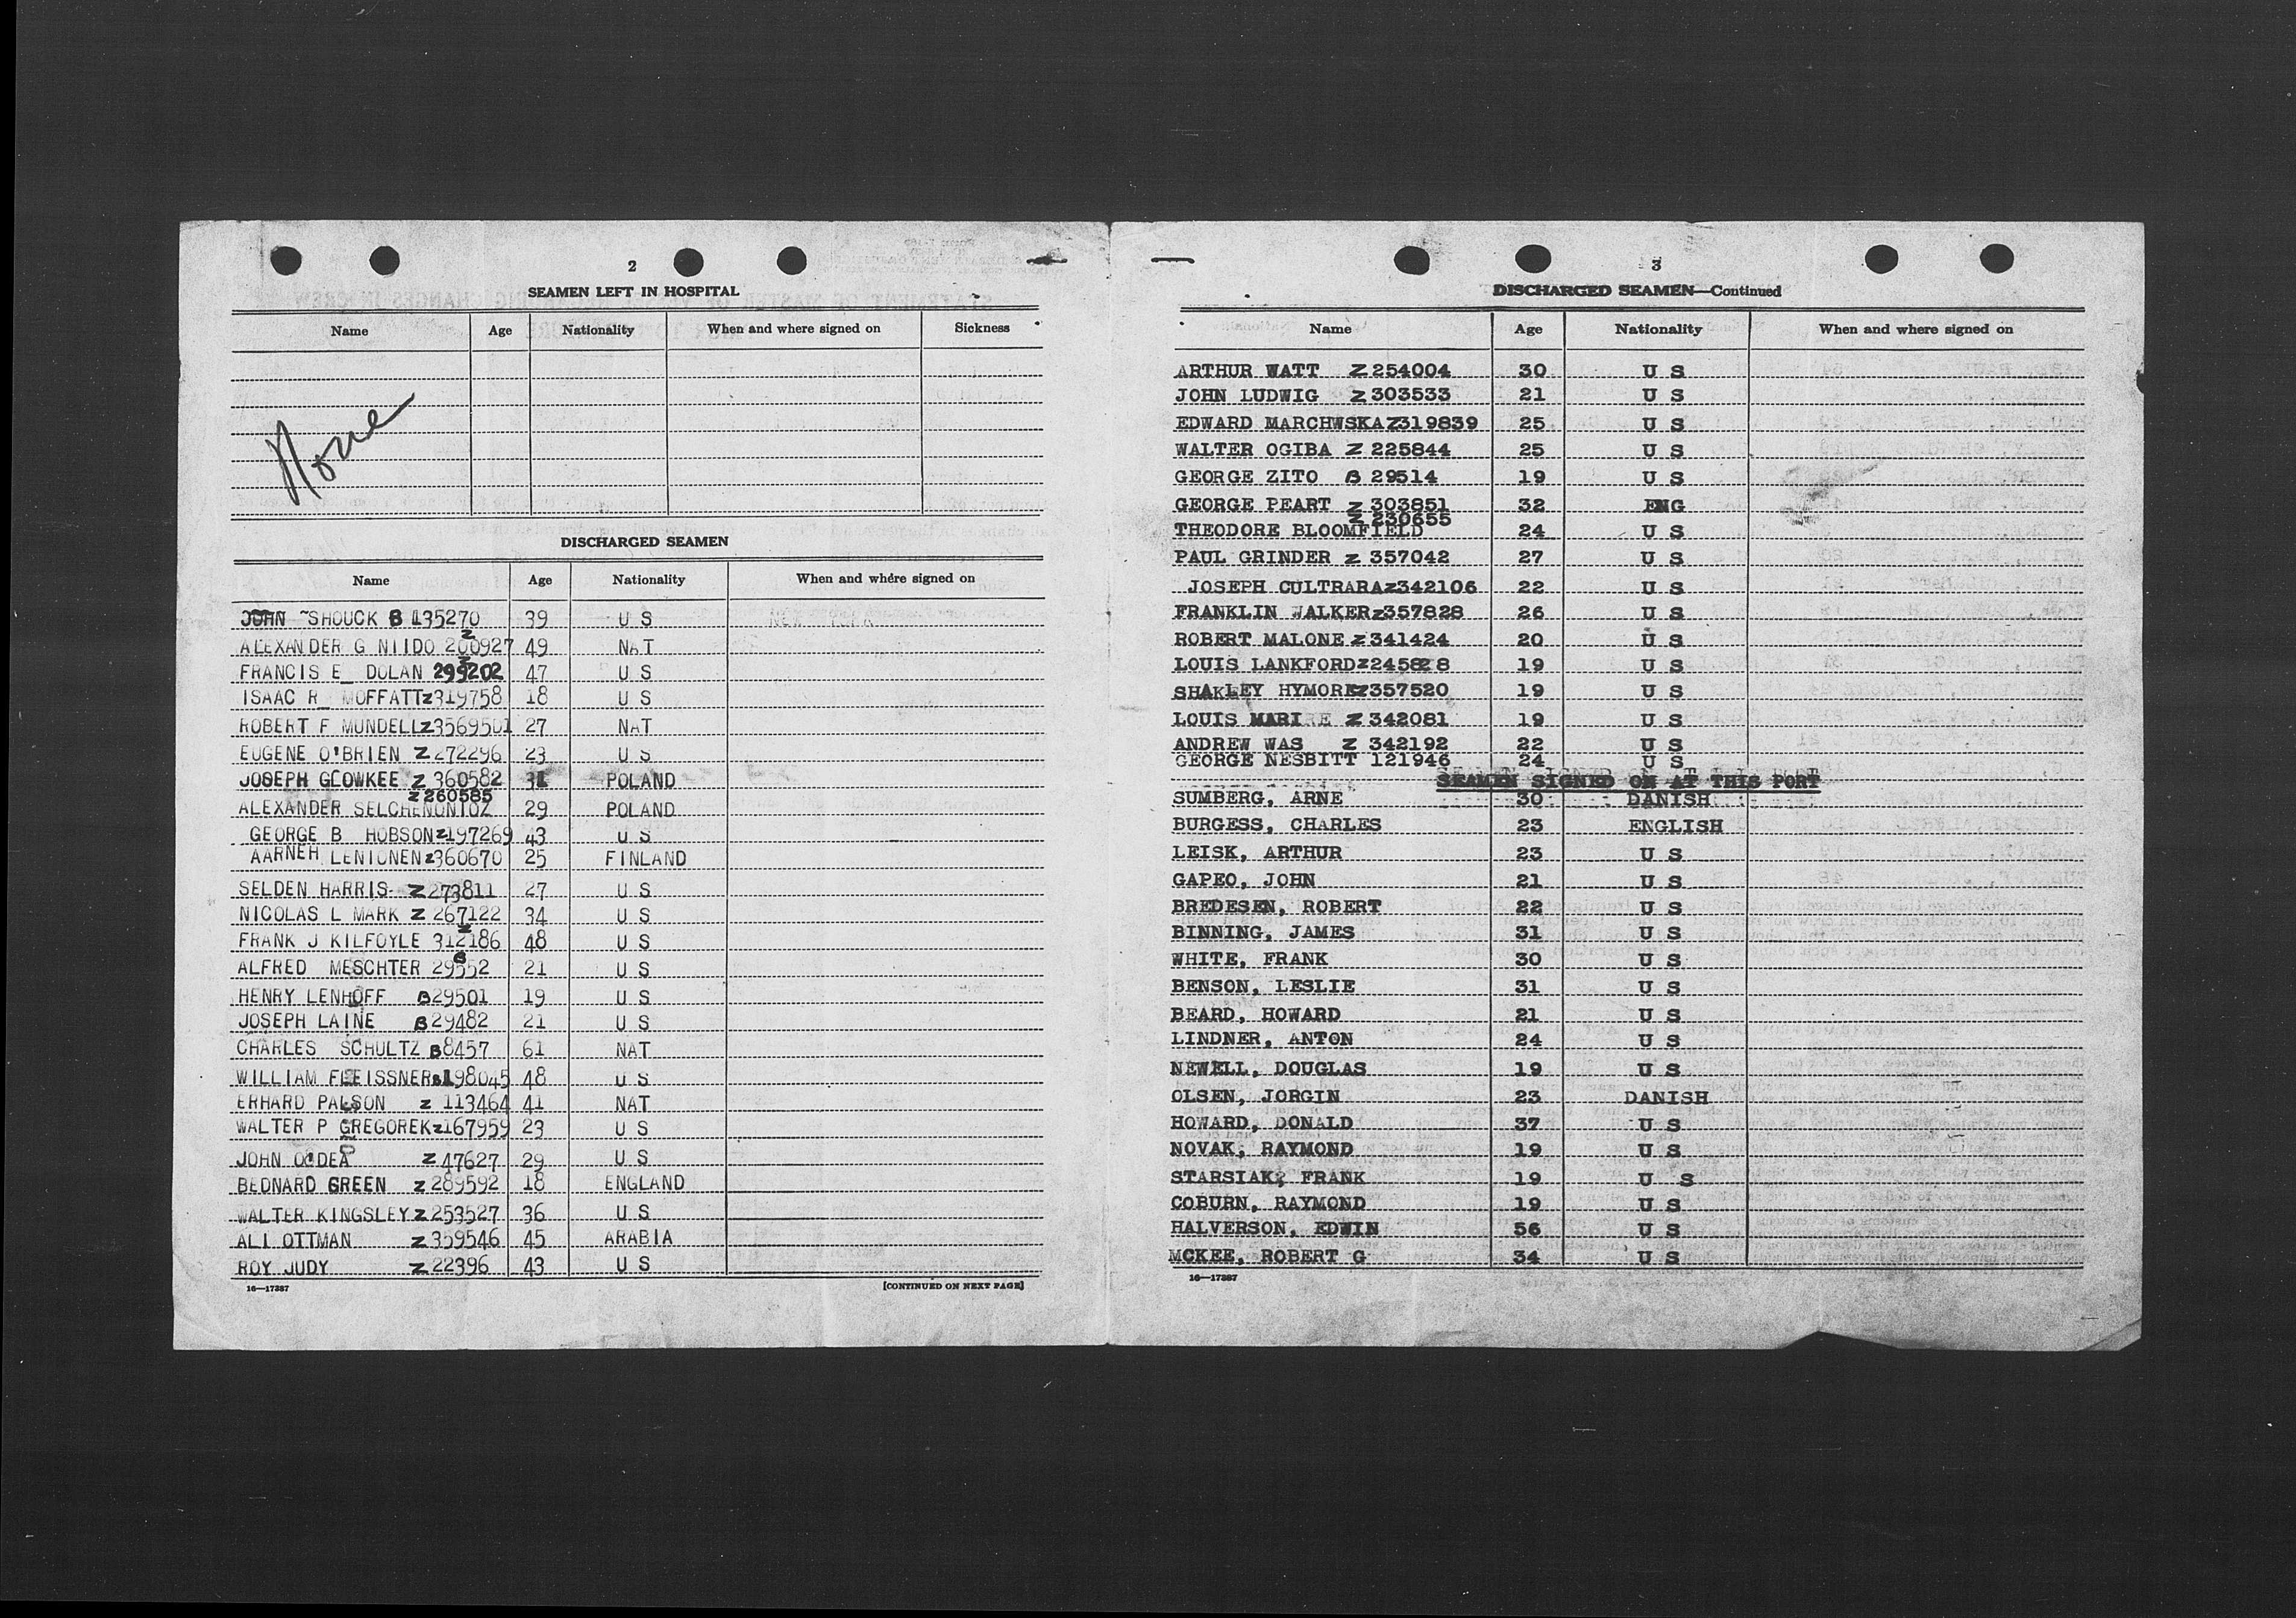 2
SEAMEN LEFT IN HOSPITAL
Name Age Nationality When and where signed on Sickness
None
DISCHARGED SEAMEN
Name Age Nationality When and where signed on
JOHN SHOUCK B 135270 39 U S
Z
ALEXANDER G NIIDO 200927 49 NAT
Z
FRANCIS E DOLAN 299202 47 U S
ISAAC R MOFFATT Z319758 18 U S
ROBERT F MUNDELL Z3569501 27 NAT
EUGENE O'BRIEN Z272296 23 U S
JOSEPH GLOWKEE Z 360582 POLAND
Z 260585
ALEXANDER SELCHENONIOZ 29 POLAND
GEORGE B HOBSON Z197269 43 U S
AARNEH LENIONEN Z360670 25 FINLAND
SELDEN HARRIS Z 273811 27 U S
NICOLAS L MARK Z 267122 34 U S
Z
FRANK J KILFOYLE 312186 48 U S
B
ALFRED MESCHTER 29552 21 U S
HENRY LENHOFF B29501 19 U S
JOSEPH LAINE B29482 21 U S
CHARLES SCHULTZ B8457 61 NAT
WILLIAM FLEISSNER B198045 48 U S
ERHARD PALSON Z 113464 41 NAT
WALTER P GREGOREK Z167959 23 U S
JOHN O'DEA Z 47627 29 U S
BEDNARD GREEN Z 289592 18 ENGLAND
WALTER KINGSLEY Z 253527 36 U S
ALI OTTMAN Z 359546 45 ARABIA
ROY JUDY Z 22396 43 U S
16—17387 [CONTINUED ON NEXT PAGE]
3
DISCHARGED SEAMEN—Continued
Name Age Nationality When and where signed on
ARTHUR WATT Z 254004 30 U S
JOHN LUDWIG Z 303533 21 U S
EDWARD MARCHWSKA Z319839 25 U S
WALTER OGIBA Z 225844 25 U S
GEORGE ZITO B 29514 19 U S
GEORGE PEART Z 303851 32 ENG
Z 230655
THEODORE BLOOMFIELD 24 U S
PAUL GRINDER Z 357042 27 U S
JOSEPH CULTRARA Z342106 22 U S
FRANKLIN WALKER Z357828 26 U S
ROBERT MALONE Z 341424 20 U S
LOUIS LANKFORD Z245828 19 U S
SHAKLEY HYMORE Z357520 19 U S
LOUIS MARIRE Z 342081 19 U S
ANDREW WAS Z 342192 22 U S
GEORGE NESBITT 121946 24 U S
SEAMEN SIGNED ON AT THIS PORT
SUMBERG, ARNE 30 DANISH
BURGESS, CHARLES 23 ENGLISH
LEISK, ARTHUR 23 U S
GAPEO, JOHN 21 U S
BREDESEN, ROBERT 22 U S
BINNING, JAMES 31 U S
WHITE, FRANK 30 U S
BENSON, LESLIE 31 U S
BEARD, HOWARD 21 U S
LINDNER, ANTON 24 U S
NEWELL, DOUGLAS 19 U S
OLSEN, JORGIN 23 DANISH
HOWARD, DONALD 37 U S
NOVAK, RAYMOND 19 U S
STARSIAK, FRANK 19 U S
COBURN, RAYMOND 19 U S
HALVERSON, EDWIN 56 U S
MCKEE, ROBERT G 34 U S
16—17387